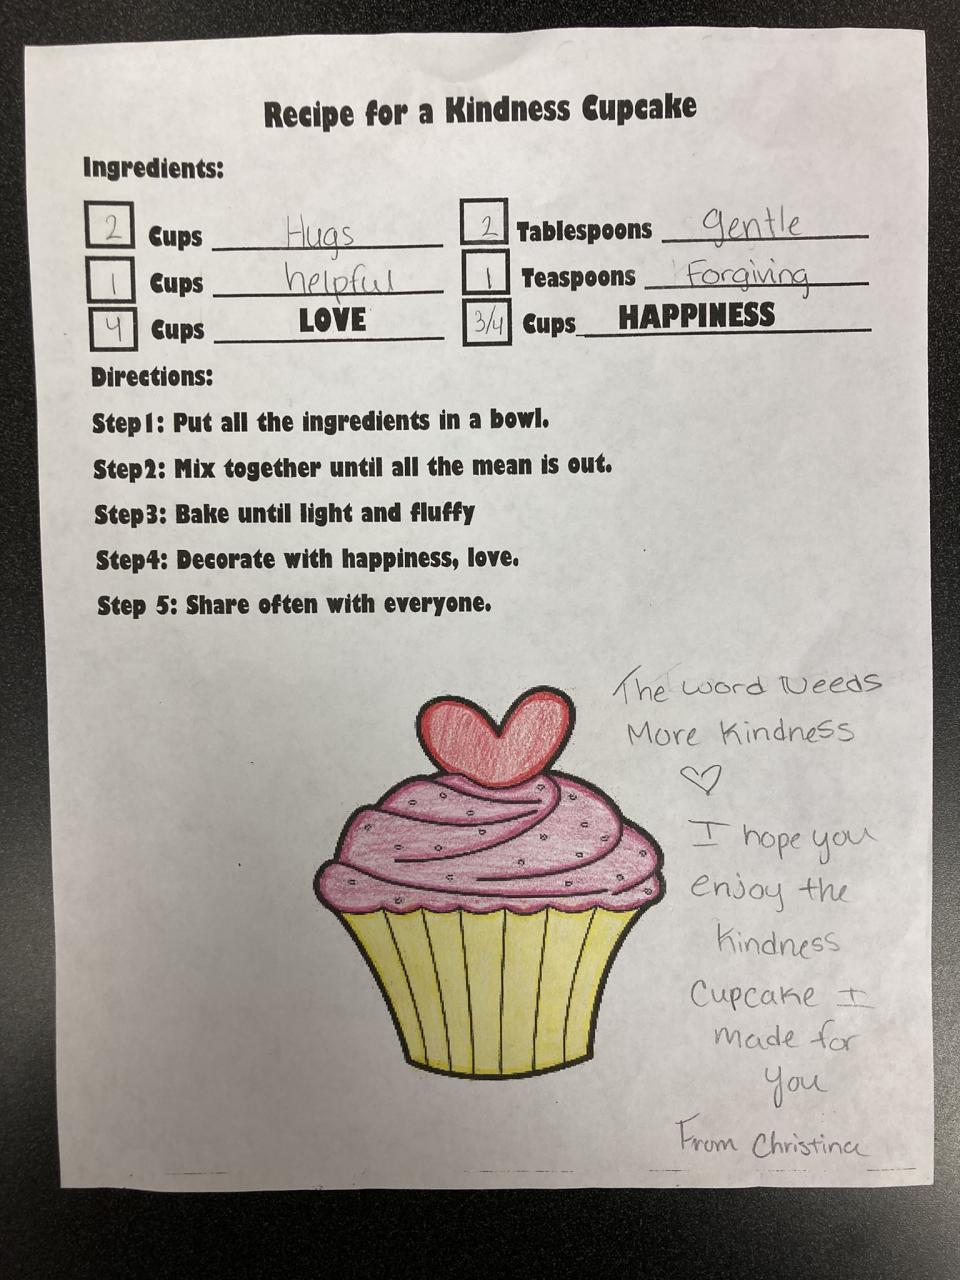 Recipe for a Kindness Cupcake
Ingredients:
2 Cups Hugs 2 Tablespoons gentle
1 Cups helpful 1 Teaspoons Forgiving
4 Cups LOVE 3/4 Cups HAPPINESS
Directions:
Step1: Put all the ingredients in a bowl.
Step2: Mix together until all the mean is out.
Step3: Bake until light and fluffy
Step4: Decorate with happiness, love.
Step 5: Share often with everyone.
The word Needs
More Kindness
♡
I hope you
enjoy the
Kindness
Cupcake I
made for
you
From Christina